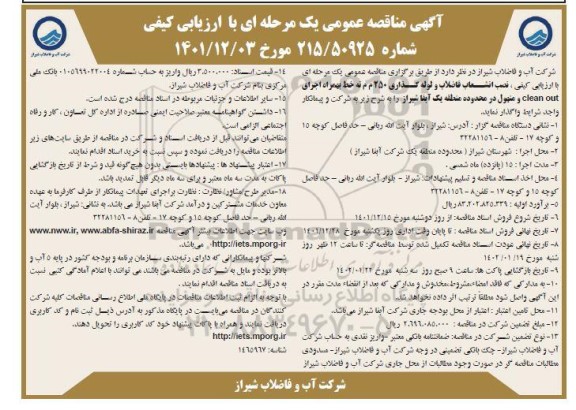 آگهی مناقصه عمومی یک مرحله ای با ارزیابی کیفی
شماره ۲۱۵/۵۰۹۲۵ مورخ ۱۴۰۱/۱۲/۰۳
شرکت آب و فاضلاب شیراز در نظر دارد از طریق برگزاری مناقصه عمومی یک مرحله ای
با ارزیابی کیفی، نصب انشعاب فاضلاب و لوله گذاری ۲۵۰ م م به خط بهمراه اجرای
clean out و منهول در محدوده منطقه یک آبفا شیراز را به شرح زیر به شرکت و پیمانکار
واجد شرایط واگذار نماید.
۱- نشانی دستگاه مناقصه گزار: آدرس: شیراز، بلوار آیت الله ربانی – حد فاصل کوچه ۱۵
و کوچه ۱۷ - تلفن ۸ - ۳۲۲۸۱۱۵۶
۲- محل اجرا: شهرستان شیراز (محدوده منطقه یک شرکت آبفا شیراز)
۳- مدت اجرا: ۱۵ (پانزده) ماه شمسی.
۴- محل اخذ اسناد مناقصه و تسلیم پیشنهادات: شیراز - بلوار آیت الله ربانی – حد فاصل
کوچه ۱۵ و کوچه ۱۷ - تلفن ۸ - ۳۲۲۸۱۱۵۶
۵- برآورد اولیه: ۸۳،۲۰۲،۸۲۵،۳۳۹ ریال
۶- تاریخ شروع فروش اسناد مناقصه: از روز دوشنبه مورخ ۱۴۰۱/۱۲/۱۵
۷- تاریخ نهائی فروش اسناد مناقصه: تا پایان وقت اداری روز یکشنبه مورخ ۱۴۰۱/۱۲/۲۸
۸- تاریخ نهائی عودت اسناد مناقصه تکمیل شده توسط مناقصه گر: تا ساعت ۱۲ ظهر روز
شنبه مورخ ۱۴۰۲/۰۱/۱۹
۹- تاریخ بازگشایی پاکت ها: ساعت ۹ صبح روز سه شنبه مورخ ۱۴۰۲/۰۱/۲۲
۱۰- به مدارکی که فاقد امضاء، مشروط، مخدوش و مدارکی که بعد از انقضاء مدت مقرر در
این آگهی واصل شود مطلقا ترتیب اثر داده نخواهد شد.
۱۱- محل تامین اعتبار: اعتبار از محل بودجه جاری شرکت آبفا شیراز می باشد.
۱۲- مبلغ تضمین شرکت در مناقصه: ۲،۶۹۶،۰۸۵،۰۰۰ ریال
۱۳- نوع تضمین شرکت در مناقصه: ضمانتنامه بانکی معتبر - واریز نقدی به حساب شرکت
آب و فاضلاب شیراز - چک بانکی تضمینی در وجه شرکت آب و فاضلاب شیراز - مسدودی
مطالبات مناقصه گر در صورت وجود مطالبات از محل جاری شرکت آب و فاضلاب شیراز
۱۴- قیمت اسناد: ۳،۵۰۰،۰۰۰ ریال واریز به حساب شماره ۰۱۰۵۶۹۹۰۲۲۰۰۴ بانک ملی
مرکزی بنام شرکت آب و فاضلاب شیراز.
۱۵- سایر اطلاعات و جزئیات مربوطه در اسناد مناقصه درج شده است.
۱۶- داشتن گواهینامه معتبر صلاحیت ایمنی صادره از اداره کل تعاون، کار و رفاه
اجتماعی الزامی است.
متقاضیان می توانند قبل از دریافت اسناد و شرکت در مناقصه از طریق سایت های زیر
اطلاعات مناقصه را دریافت نموده و سپس نسبت به خرید اسناد اقدام نمایند.
۱۷- اعتبار پیشنهاد ها: پیشنهادها بایستی بدون هیچگونه قید و شرط از تاریخ بازگشایی
پاکات به مدت سه ماه معتبر و برای سه ماه دیگر قابل تمدید باشد.
۱۸- مدیر طرح/مشاور/نظارت: نظارت براجرای تعهدات پیمانکار از طرف کارفرما به عهده
معاون خدمات مشترکین و درآمد شرکت آبفا شیراز می باشد. به نشانی: شیراز، بلوار آیت
الله ربانی – حد فاصل کوچه ۱۵ و کوچه ۱۷ - تلفن ۸ - ۳۲۲۸۱۱۵۶
وب سایت جهت اطلاعات آگهی مناقصه www.nww.ir, www.abfa-shiraz.ir
http://iets.mporg.ir می باشد.
شرکتها و پیمانکارانی که دارای رتبه بندی سازمان برنامه و بودجه کشور در پایه ۵ آب و
بالاتر بوده و مایل به شرکت در مناقصه می باشند می توانند با اعلام آمادگی کتبی نسبت
به دریافت اسناد مناقصه اقدام نمایند.
با توجه به الزام ثبت اطلاعات مناقصات در پایگاه ملی اطلاع رسانی مناقصات کلیه شرکت
کنندگان در مناقصه می بایست در پایگاه مذکور به آدرس ذیل ثبت نام و کد کاربری
دریافت نمایند و همراه با پاکات پیشنهاد خود کد کاربری را تحویل دهند.
http://iets.mporg.ir
شناسه: ۱۴۶۵۹۶۷
شرکت آب و فاضلاب شیراز